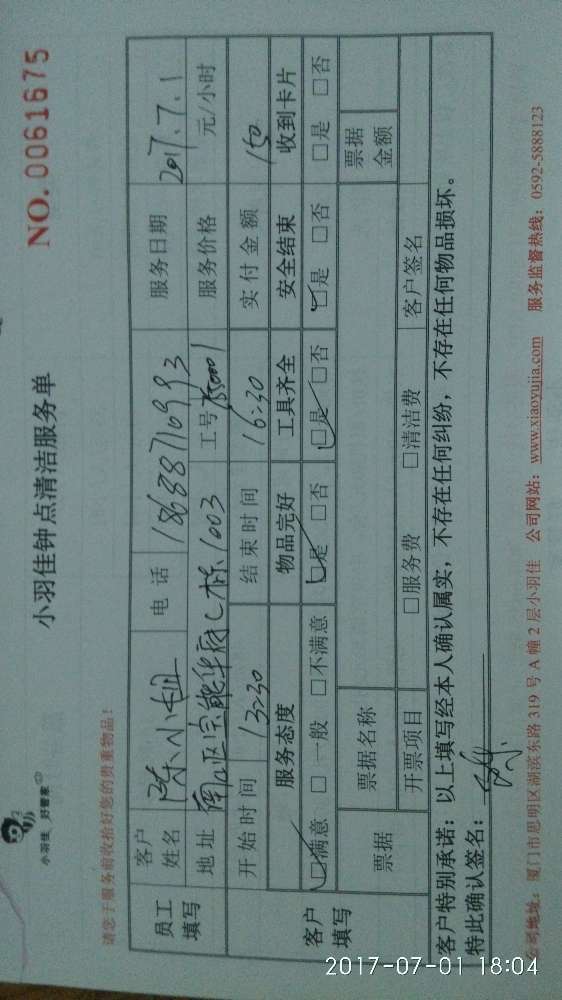 小羽佳 好管家
小羽佳钟点清洁服务单
NO. 0061675
请您于服务前收拾好您的贵重物品！
员工填写
客户姓名 陈小姐 电话 18688716993 服务日期 2017.7.1
地址 C栋1003 工号 服务价格 元/小时
客户填写
开始时间 13:30 结束时间 16:30 实付金额 150
服务态度 物品完好 工具齐全 安全结束 收到卡片
☑满意 □一般 □不满意 ☑是 □否 ☑是 □否 ☑是 □否 □是 □否
票据 票据名称 票据金额
开票项目 □服务费 □清洁费 客户签名
客户特别承诺：以上填写经本人确认属实，不存在任何纠纷，不存在任何物品损坏。
特此确认签名：
公司地址：厦门市思明区湖滨东路319号A幢2层小羽佳 公司网站：www.xiaoyujia.com 服务监督热线：0592-5888123
2017-07-01 18:04